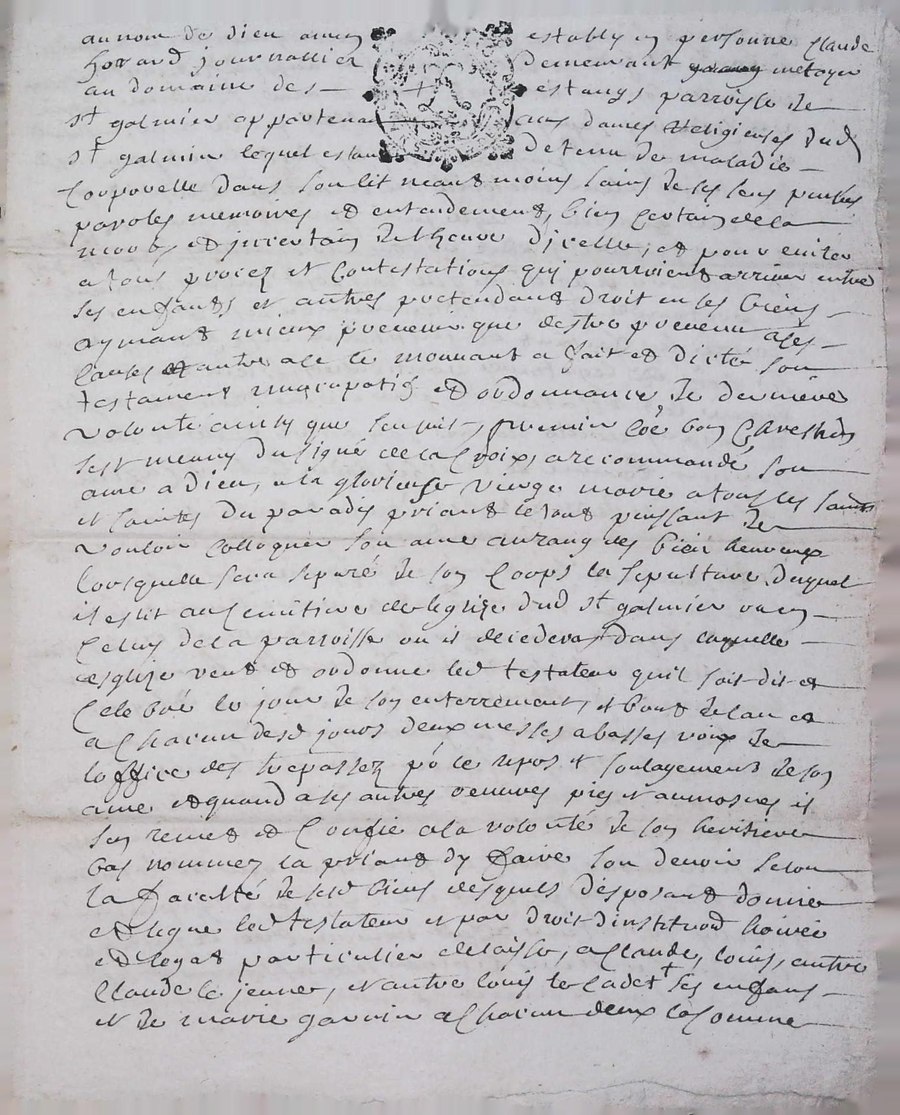 au nom de dieu amen establÿ en personne Claude
journallier demeurant metayer
au domaine des estangs parroisse de
st galmier appartenant aux dames religieuses dud
st galmier lequel estant detenu de maladie
corporelle dans son lit neantmoins sains de ses sens pensées
paroles memoires et entendement, bien certain de la
mort et incertain de lheure dicelle, et pour eviter
a tous procez et contestations qui pourroient arriver entre
ses enfants et autres pretendants droit en ses biens
aymant mieux prevenir que destre prevenu a ces
causes et autre a ce le mouvant a fait et dicté son
testament nuncupatif et ordonnance de derniere
volonté ainsy que sensuit, premier coe bon chrestien
sest meuny du signe de la croix, a recommandé son
ame a dieu, a la glorieuse vierge marie a tous les saints
et saintes du paradis priant le tout puissant de
vouloir colloquer son ame au rang des bien heureux
lorsquelle sera separé de son corps la sepulture duquel
il eslit au cimitiere de leglize dud st galmier ou en
celuy de la parroisse ou il decedera dans laquelle
esglize veut et ordonne led testateur quil soit dit et
celebré le jour de son enterrement, et bout de lan et
a chacun desd jours deux messes a basses voix de
loffice des trepassez po le repos et soulagement de son
ame et quand a ses autres oeuvres pies et aumosnes il
sen remet et confie a la volonté de son heritiere
bas nommez la priant dy faire son devoir selon
la faculté de sesd biens desquels disposant donne
et legue led testateur et par droit dinstituon hoirie
et legat particulier delaisse, a Claude, louis, autre
Claude le jeune, et autre louis le cadet + ses enfans
et de marie garnin a chacun deux la somme